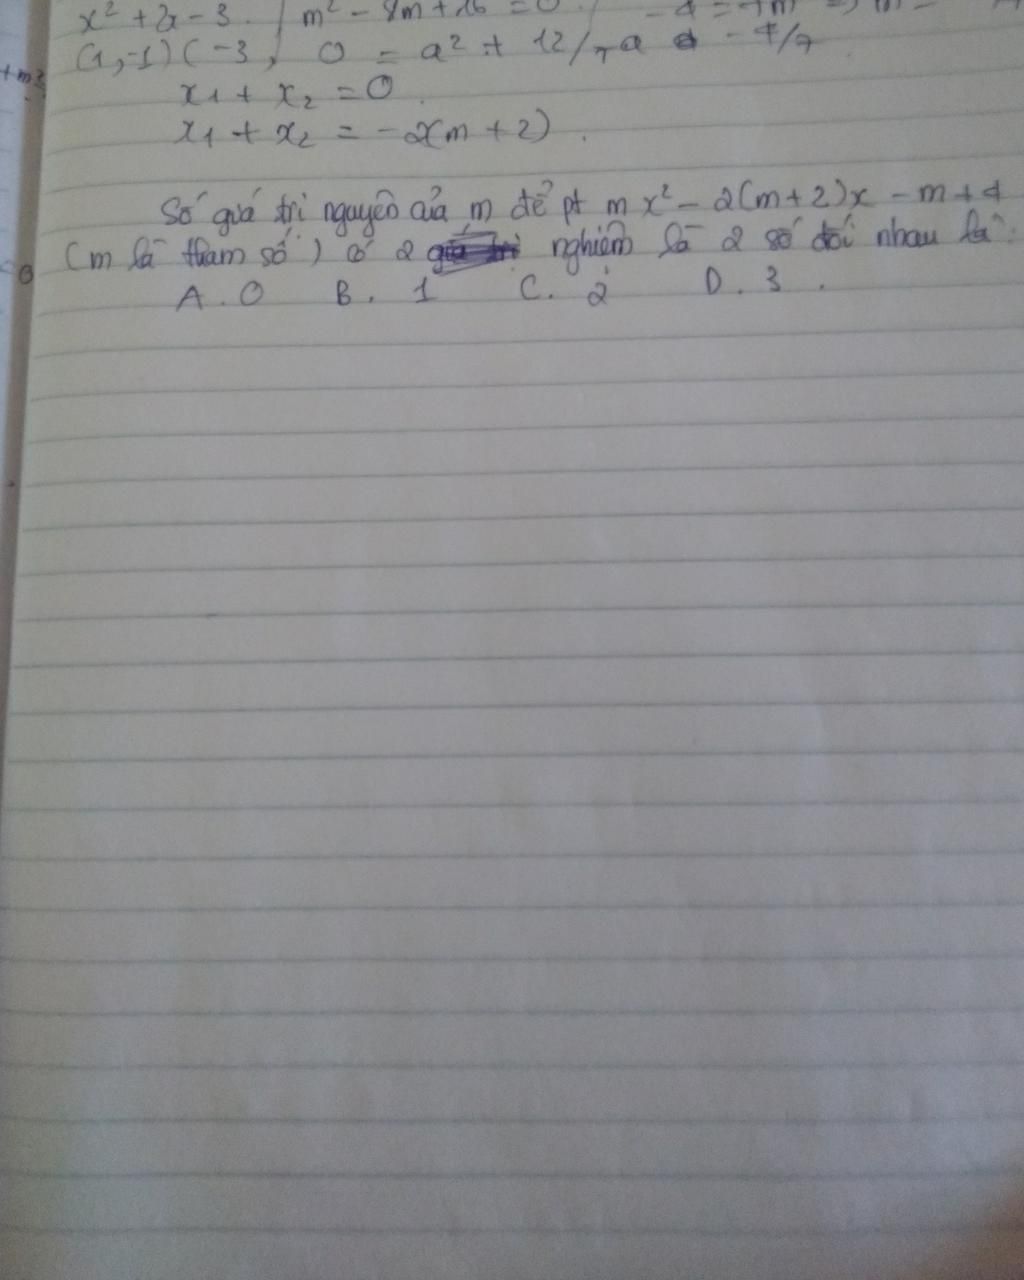 x² + 2x - 3. / m² - 8m + 16 = 0.
(1,-1) (-3, 0 = a² + 12/7 a - 7/7
x₁ + x₂ = 0.
x₁ + x₂ = -2(m + 2).
Số giá trị nguyên của m để pt mx² - 2(m+2)x - m + 4
(m là tham số) có 2 nghiệm là 2 số đối nhau là:
A. 0 B. 1 C. 2 D. 3.